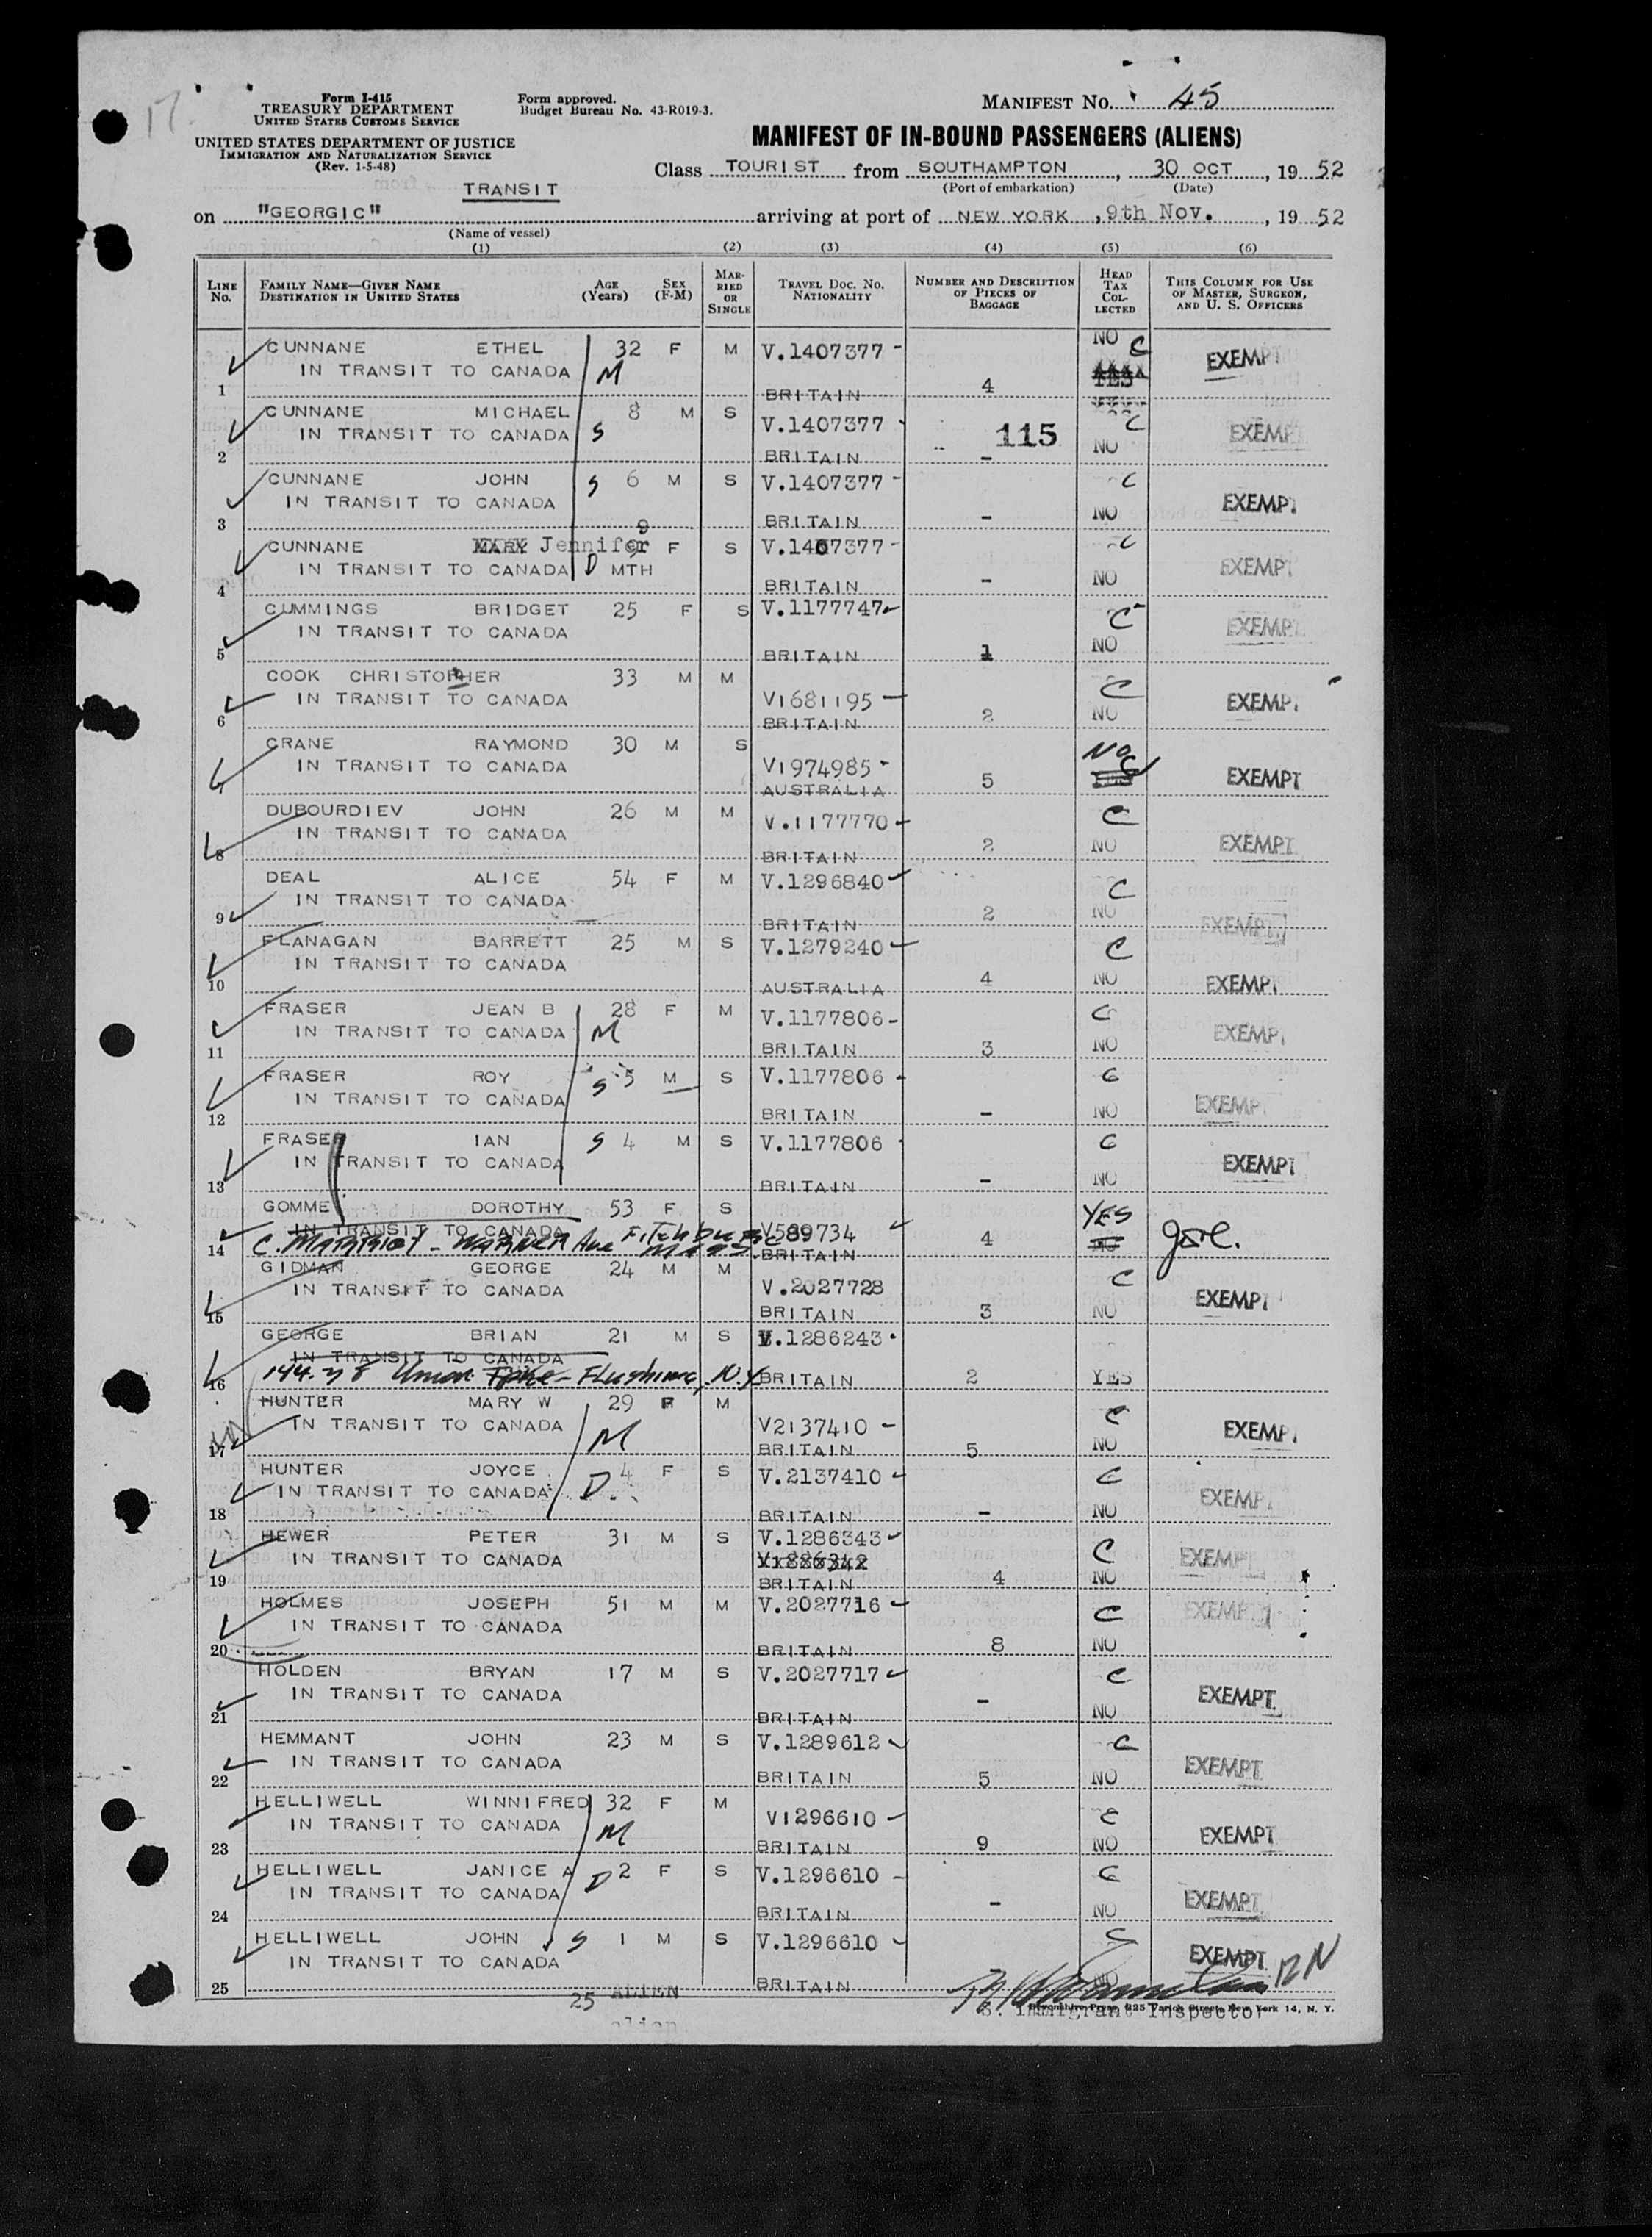 17.
Form I-415
TREASURY DEPARTMENT
UNITED STATES CUSTOMS SERVICE
Form approved.
Budget Bureau No. 43-R019-3.
MANIFEST NO. 45
UNITED STATES DEPARTMENT OF JUSTICE
IMMIGRATION AND NATURALIZATION SERVICE
(Rev. 1-5-48)
MANIFEST OF IN-BOUND PASSENGERS (ALIENS)
Class TOURIST from SOUTHAMPTON, 30 OCT, 19 52
(Port of embarkation) (Date)
TRANSIT
on "GEORGIC" arriving at port of NEW YORK, 9th Nov., 19 52
(Name of vessel)
(1) (2) (3) (4) (5) (6)
LINE NO. FAMILY NAME—GIVEN NAME DESTINATION IN UNITED STATES AGE (Years) SEX (F-M) MARRIED OR SINGLE TRAVEL DOC. NO. NATIONALITY NUMBER AND DESCRIPTION OF PIECES OF BAGGAGE HEAD TAX COLLECTED THIS COLUMN FOR USE OF MASTER, SURGEON, AND U. S. OFFICERS
CUNNANE ETHEL 32 F M V.1407377 - NO C EXEMPT
IN TRANSIT TO CANADA M YES
1 BRITAIN 4
CUNNANE MICHAEL 8 M S V.1407377 C EXEMP
IN TRANSIT TO CANADA S 115 NO
2 BRITAIN -
CUNNANE JOHN S 6 M S V.1407377 - C
IN TRANSIT TO CANADA EXEMP.
3 BRITAIN - NO
CUNNANE MARY Jennifer 9 F S V.1407377 - C
IN TRANSIT TO CANADA D MTH EXEMPT
4 BRITAIN - NO
CUMMINGS BRIDGET 25 F S V.1177747 C
IN TRANSIT TO CANADA EXEMP
5 BRITAIN 1 NO
COOK CHRISTOPHER 33 M M C
IN TRANSIT TO CANADA V1681195 - EXEMP.
6 BRITAIN 2 NO
CRANE RAYMOND 30 M S NO C
IN TRANSIT TO CANADA V1974985 - YES EXEMPT
7 AUSTRALIA 5
DUBOURDIEV JOHN 26 M M C
IN TRANSIT TO CANADA V.1177770 - EXEMPT
8 BRITAIN 2 NO
DEAL ALICE 54 F M V.1296840 C
IN TRANSIT TO CANADA
9 BRITAIN 2 NO EXEMPT
FLANAGAN BARRETT 25 M S V.1279240 C
IN TRANSIT TO CANADA
10 AUSTRALIA 4 NO EXEMP.
FRASER JEAN B 28 F M V.1177806 - C
IN TRANSIT TO CANADA M EXEMP.
11 BRITAIN 3 NO
FRASER ROY S 5 M S V.1177806 - C
IN TRANSIT TO CANADA EXEMP
12 BRITAIN - NO
FRASER IAN S 4 M S V.1177806 C
IN TRANSIT TO CANADA EXEMPT
13 BRITAIN - NO
GOMME DOROTHY 53 F S YES
IN TRANSIT TO CANADA V589734
14 C. MARRIOT - WARNER Ave FITCHBURG MASS. BRITAIN 4 NO
GIDMAN GEORGE 24 M M C
IN TRANSIT TO CANADA V.2027728 EXEMPT
15 BRITAIN 3 NO
GEORGE BRIAN 21 M S V.1286243
IN TRANSIT TO CANADA
16 144-78 Union Tpke - Flushing, N.Y. BRITAIN 2 YES
HUNTER MARY W 29 F M C
IN TRANSIT TO CANADA M V2137410 - EXEMP.
17 BRITAIN 5 NO
HUNTER JOYCE 4 F S V.2137410 C
IN TRANSIT TO CANADA D. EXEMP
18 BRITAIN - NO
HEWER PETER 31 M S V.1286343 C
IN TRANSIT TO CANADA EXEMPT
19 BRITAIN 4 NO
HOLMES JOSEPH 51 M M V.2027716 C EXEMP
IN TRANSIT TO CANADA
20 BRITAIN 8 NO
HOLDEN BRYAN 17 M S V.2027717 C
IN TRANSIT TO CANADA - EXEMPT
21 BRITAIN NO
HEMMANT JOHN 23 M S V.1289612 C
IN TRANSIT TO CANADA EXEMPT
22 BRITAIN 5 NO
HELLIWELL WINNIFRED 32 F M V1296610 - C
IN TRANSIT TO CANADA M EXEMPT
23 BRITAIN 9 NO
HELLIWELL JANICE A D 2 F S V.1296610 - C
IN TRANSIT TO CANADA - EXEMPT
24 BRITAIN NO
HELLIWELL JOHN S 1 M S V.1296610 C
IN TRANSIT TO CANADA EXEMPT 12 N
25 BRITAIN NO
25 ALIEN
alien
Devonshire Press, 225 Varick Street, New York 14, N. Y.
S. Immigrant Inspector